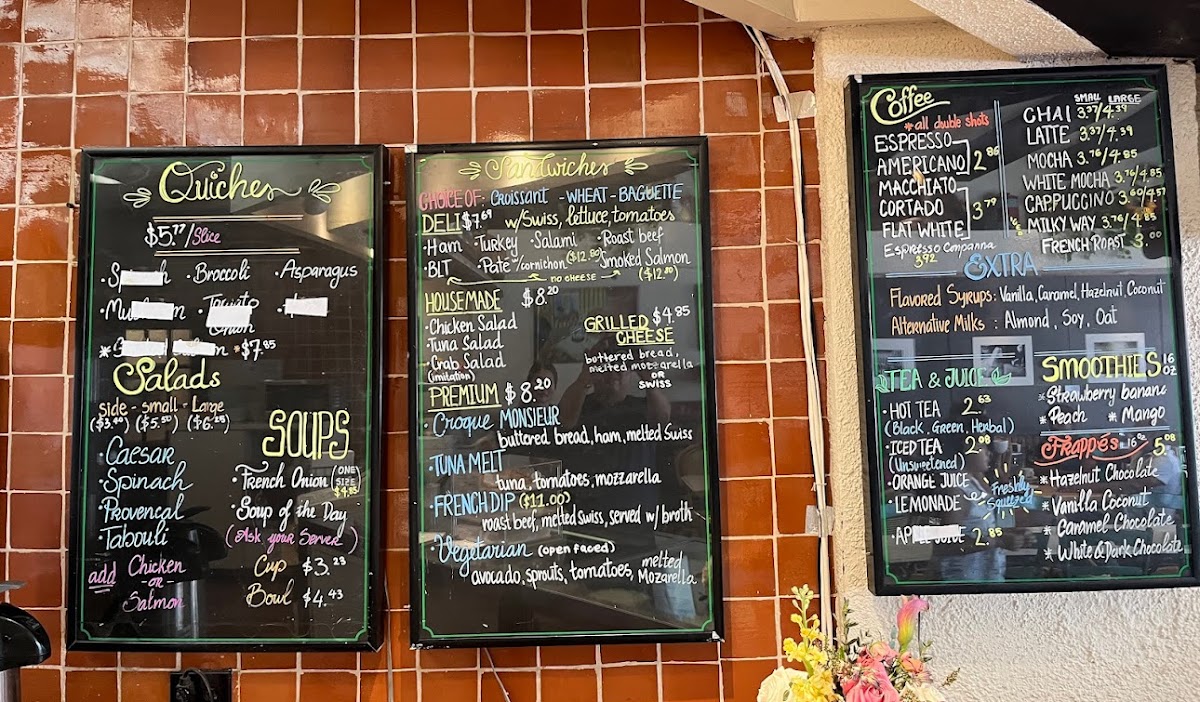 Quiches
$5.77/Slice
· Broccoli · Asparagus
*$7.95
Salads
side - small - Large
($3.40) ($5.50) ($6.25)
· Caesar
· Spinach
· Provencal
· Tabouli
add Chicken
-or-
Salmon
SOUPS
· French Onion (ONE SIZE $4.85)
· Soup of the Day
(Ask your Server)
Cup $3.23
Bowl $4.43
Sandwiches
CHOICE OF: Croissant - WHEAT - BAGUETTE
DELI $7.69 w/Swiss, lettuce tomatoes
· Ham · Turkey · Salami · Roast beef
· BLT · Paté w/cornichon ($12.80) · Smoked Salmon
NO CHEESE ($12.80)
HOUSEMADE $8.20
· Chicken Salad
· Tuna Salad
· Crab Salad
(imitation)
GRILLED $4.85
CHEESE
buttered bread,
melted mozzarella
OR
SWISS
PREMIUM $8.20
· Croque MONSIEUR
buttered bread, ham, melted Swiss
· TUNA MELT
tuna, tomatoes, mozzarella
· FRENCH DIP ($11.00)
roast beef, melted swiss, served w/ broth
· Vegetarian (open faced)
avocado, sprouts, tomatoes, melted Mozarella
Coffee
*all double shots
ESPRESSO
AMERICANO 2.86
MACCHIATO
CORTADO 3.79
FLAT WHITE
Espresso Companna
3.92
SMALL LARGE
CHAI 3.37/4.39
LATTE 3.37/4.39
MOCHA 3.76/4.85
WHITE MOCHA 3.76/4.85
CAPPUCCINO 3.60/4.57
MILKY WAY 3.76/4.85
FRENCH ROAST 3.00
EXTRA
Flavored Syrups: Vanilla, Caramel, Hazelnut, Coconut
Alternative Milks : Almond, Soy, Oat
TEA & JUICE
· HOT TEA 2.63
(Black, Green, Herbal)
· ICED TEA 2.08
(Unsweetened)
· ORANGE JUICE
· LEMONADE
Freshly
Squeezed
2.85
SMOOTHIES 16 OZ
* Strawberry banana
* Peach * Mango
Frappés 16 oz 5.08
* Hazelnut Chocolate
* Vanilla Coconut
* Caramel Chocolate
* White & Dark Chocolate